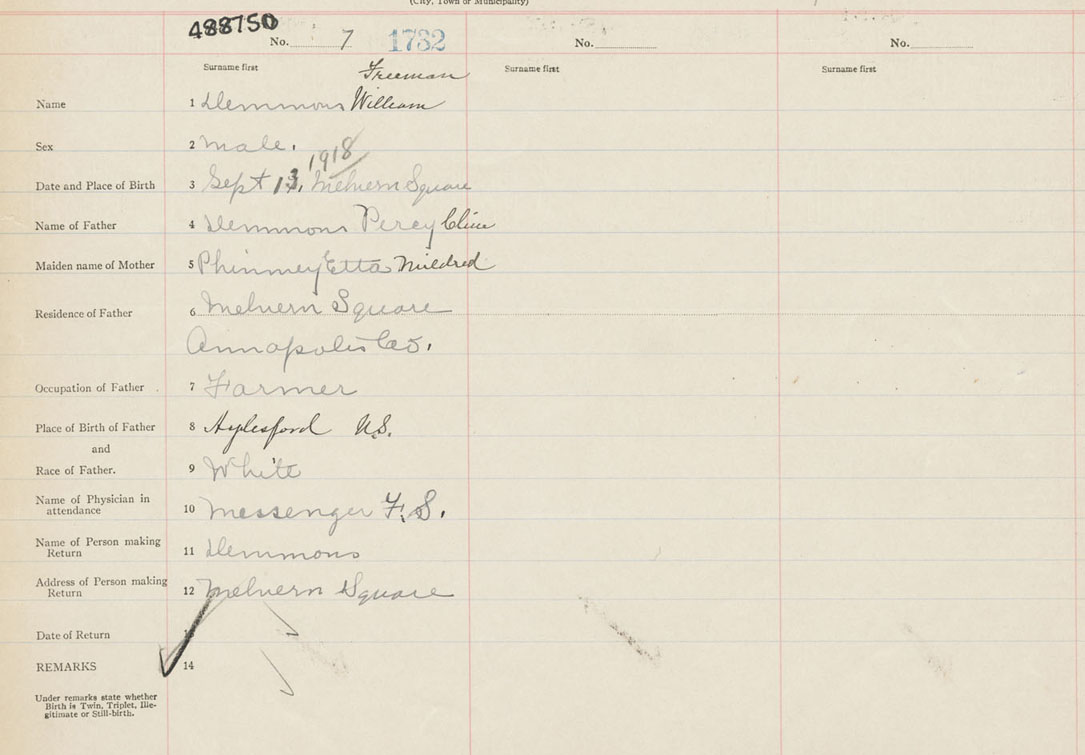 (City, Town or Municipality)
488750
No. 7 1732 No. No.
Surname first Surname first Surname first
Freeman
Name 1 Demmons William
Sex 2 Male.
1918
Date and Place of Birth 3 Sept 13, Melvern Square
Name of Father 4 Demmons Percy Cline
Maiden name of Mother 5 Phinney Etta Mildred
Residence of Father 6 Melvern Square
Annapolis Co.
Occupation of Father 7 Farmer
Place of Birth of Father 8 Aylesford N.S.
and
Race of Father. 9 White
Name of Physician in
attendance 10 Messenger F. S.
Name of Person making
Return 11 Demmons
Address of Person making
Return 12 Melvern Square
Date of Return
REMARKS 14
Under remarks state whether
Birth is Twin, Triplet, Ille-
gitimate or Still-birth.